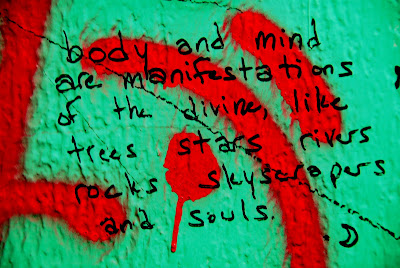 body and mind
are manifestations
of the divine, like
trees stars rivers
rocks skyscrapers
and souls.